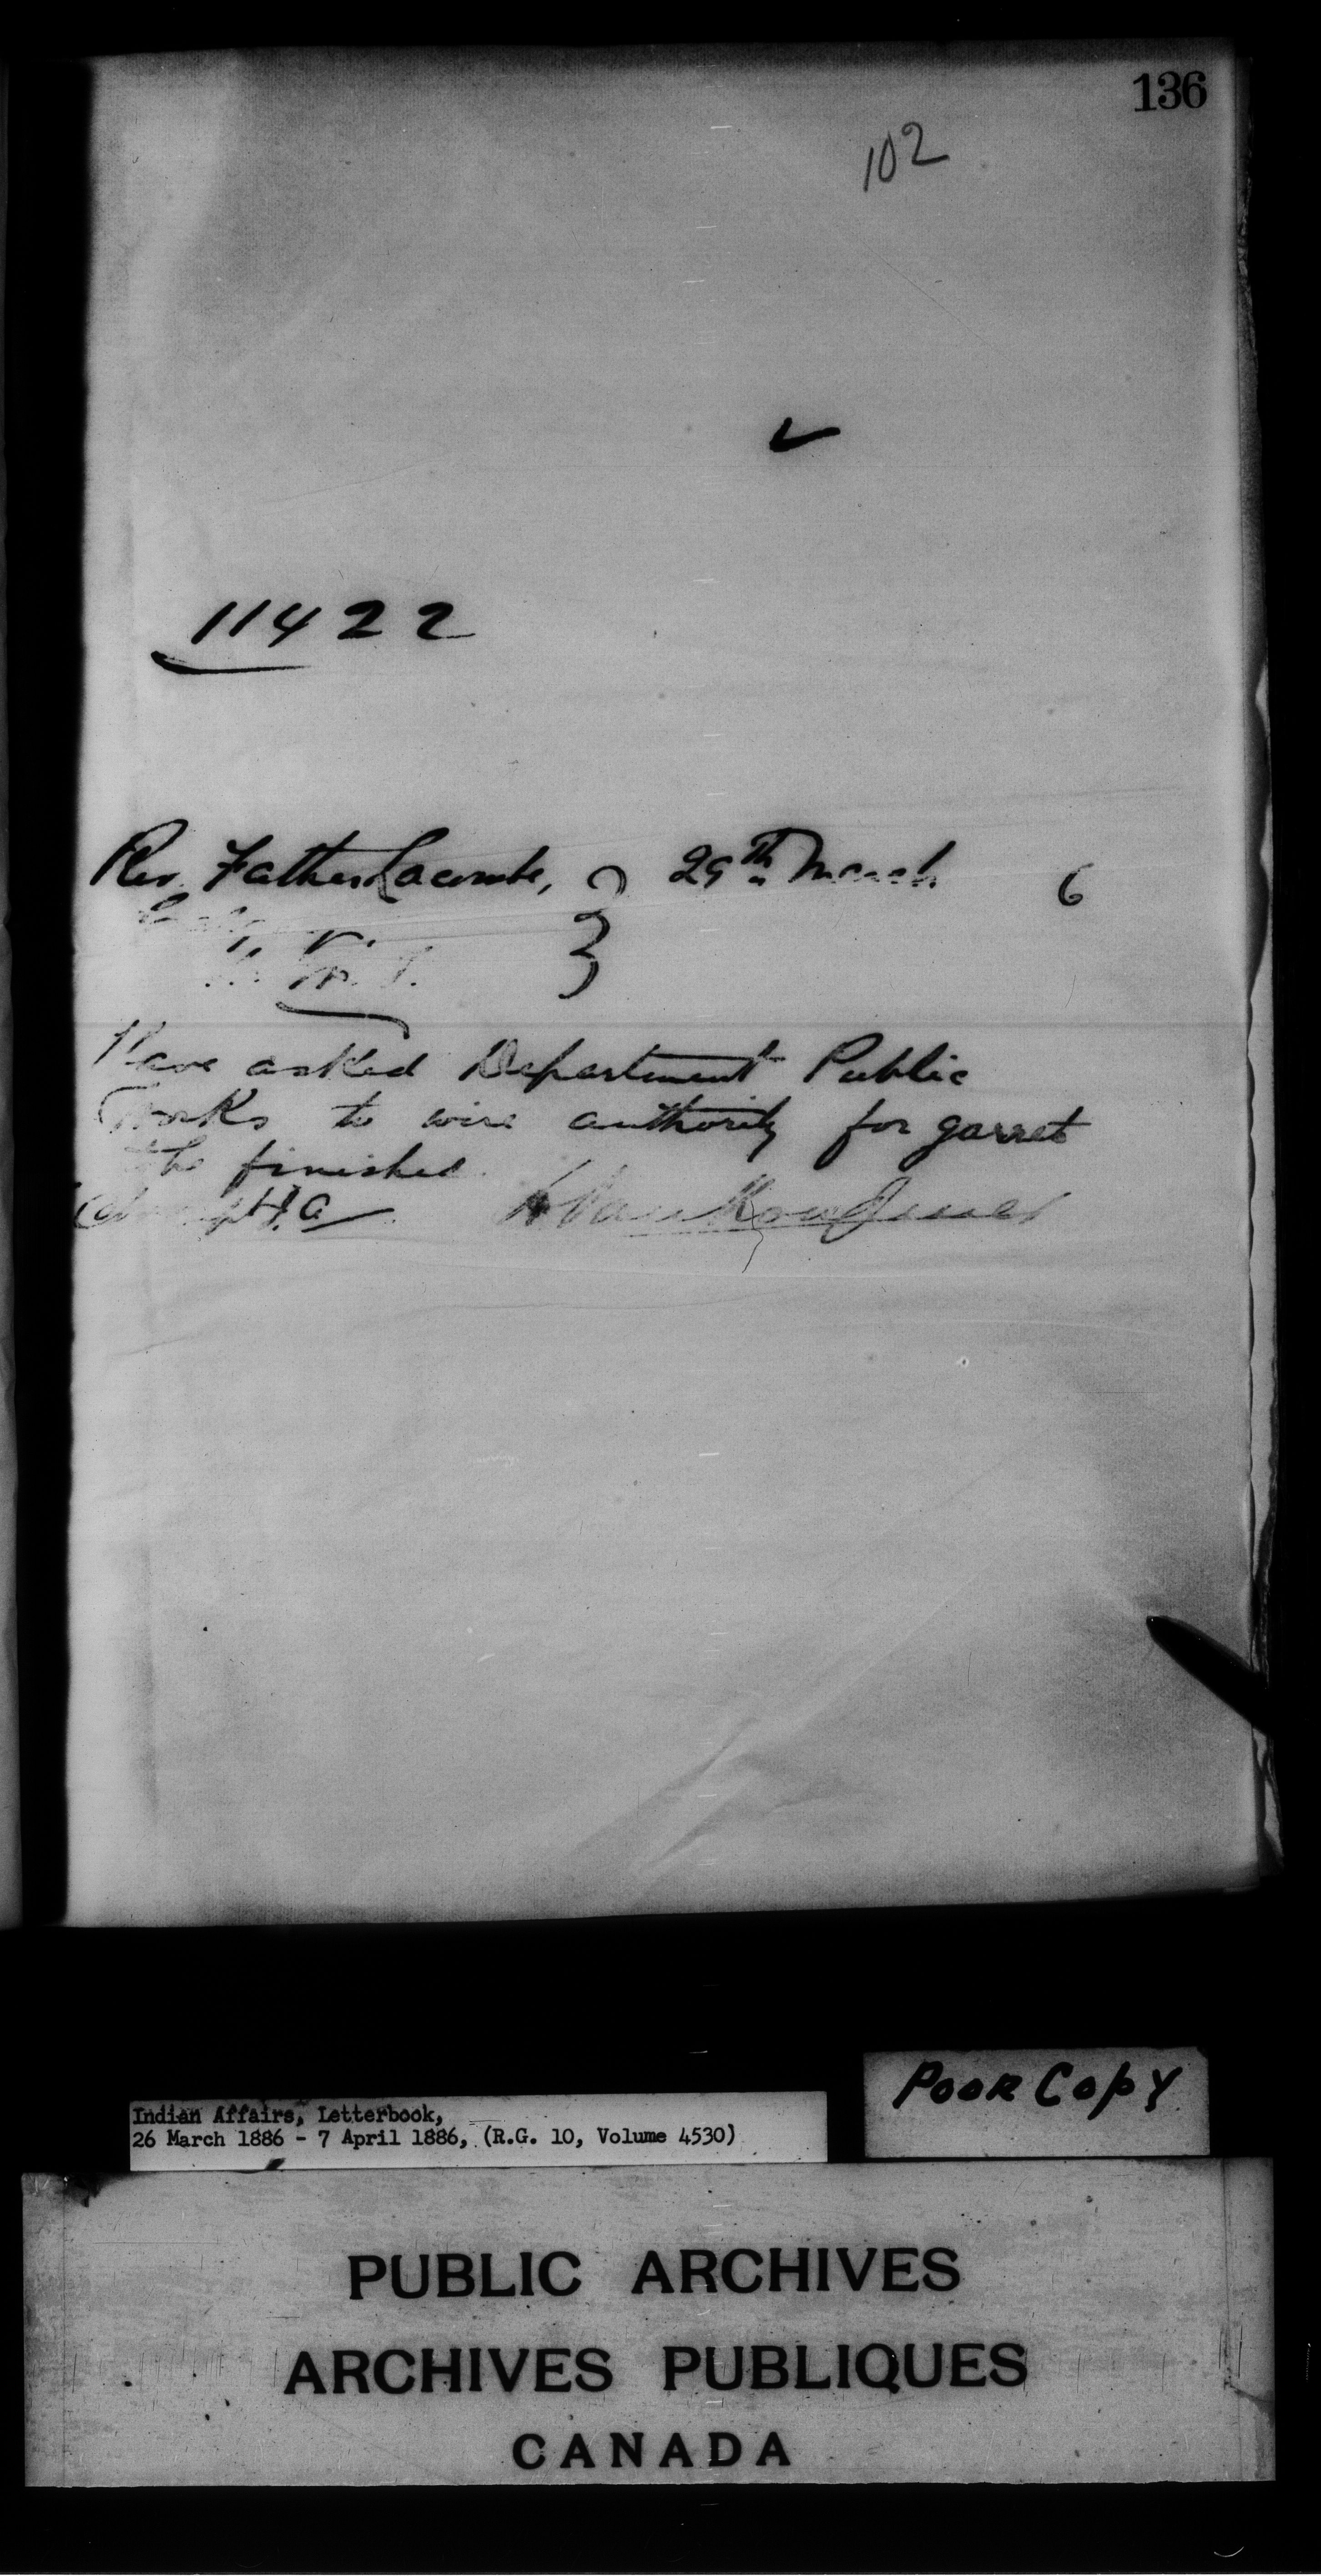 136
102
11422
Rev. Father Lacombe, 29th March 6
N. W. T.
Have asked Department Public
Works to wire authority for garret
to be finished.
L. VanKoughnet
Indian Affairs, Letterbook,
26 March 1886 - 7 April 1886, (R.G. 10, Volume 4530)
POOR COPY
PUBLIC ARCHIVES
ARCHIVES PUBLIQUES
CANADA